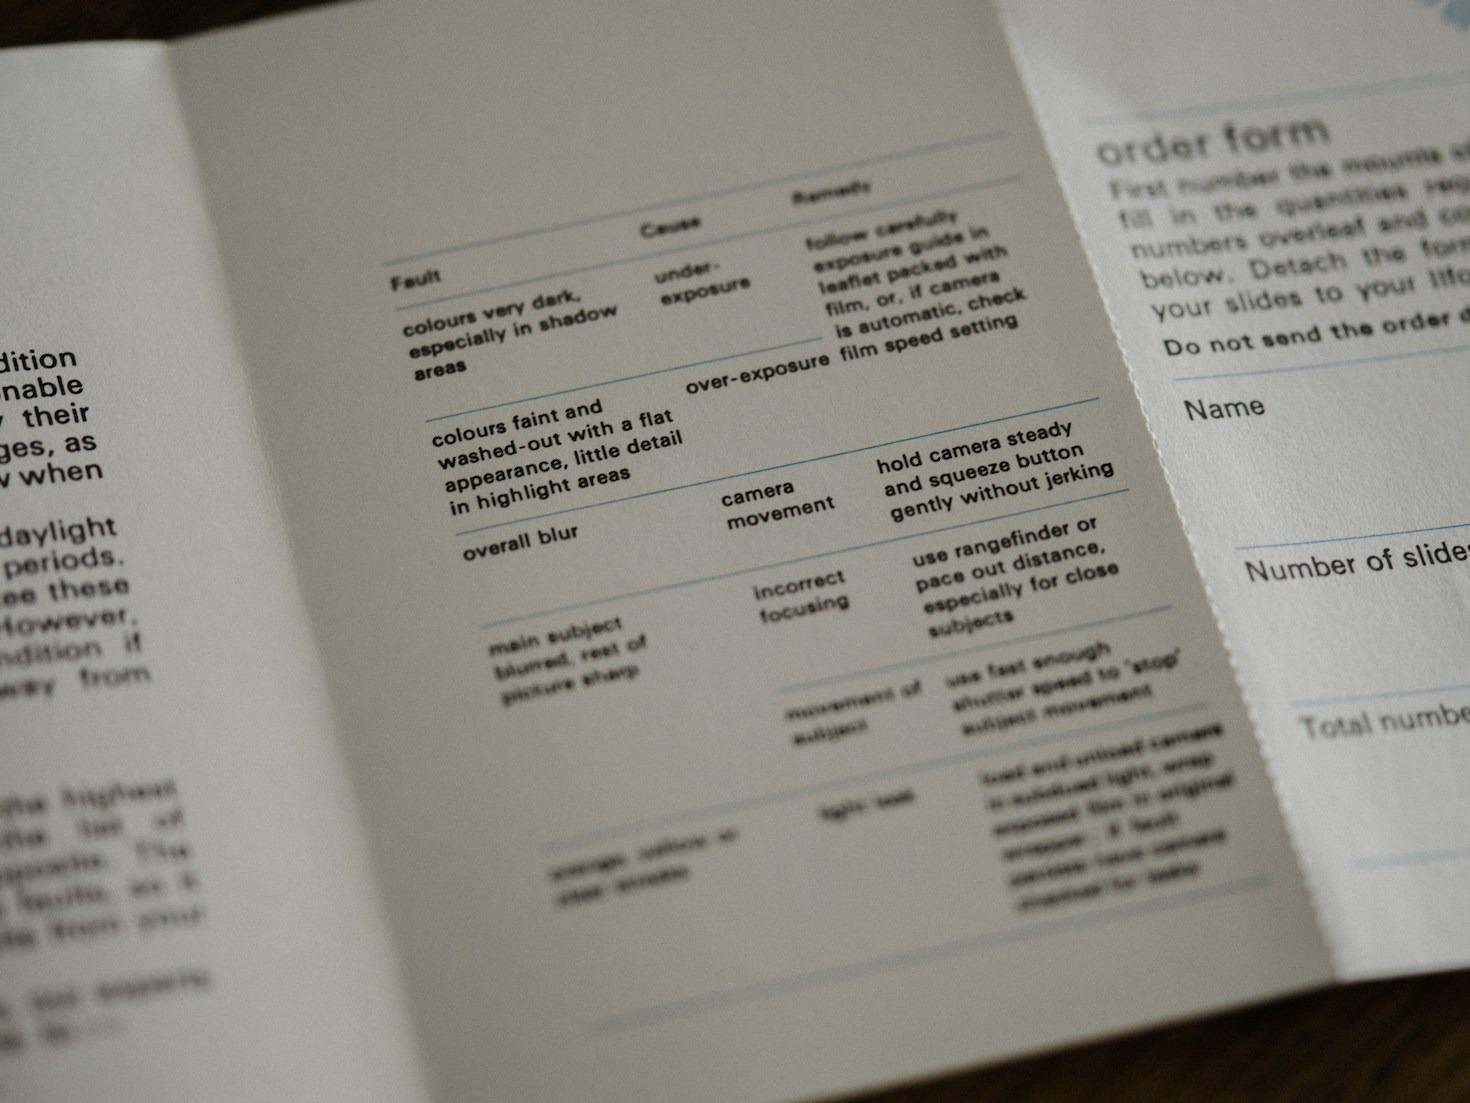 dition
nable
their
ges, as
when
daylight
periods.
ee these
However,
ndition if
away from
the highest
the list of
The
faults, as it
from your
Fault
Cause
Remedy
colours very dark,
especially in shadow
areas
under-
exposure
follow carefully
exposure guide in
leaflet packed with
film, or, if camera
is automatic, check
film speed setting
colours faint and
washed-out with a flat
appearance, little detail
in highlight areas
over-exposure
overall blur
camera
movement
hold camera steady
and squeeze button
gently without jerking
main subject
blurred, rest of
picture sharp
incorrect
focusing
use rangefinder or
pace out distance,
especially for close
subjects
movement of
subject
use fast enough
shutter speed to 'stop'
subject movement
orange, yellow or
light leak
load and unload camera
in subdued light, wrap
exposed film in original
fault
order form
First number the mounts
fill in the quantities
numbers overleaf and
below. Detach the form
your slides to your
Do not send the order
Name
Number of slides
Total numbe